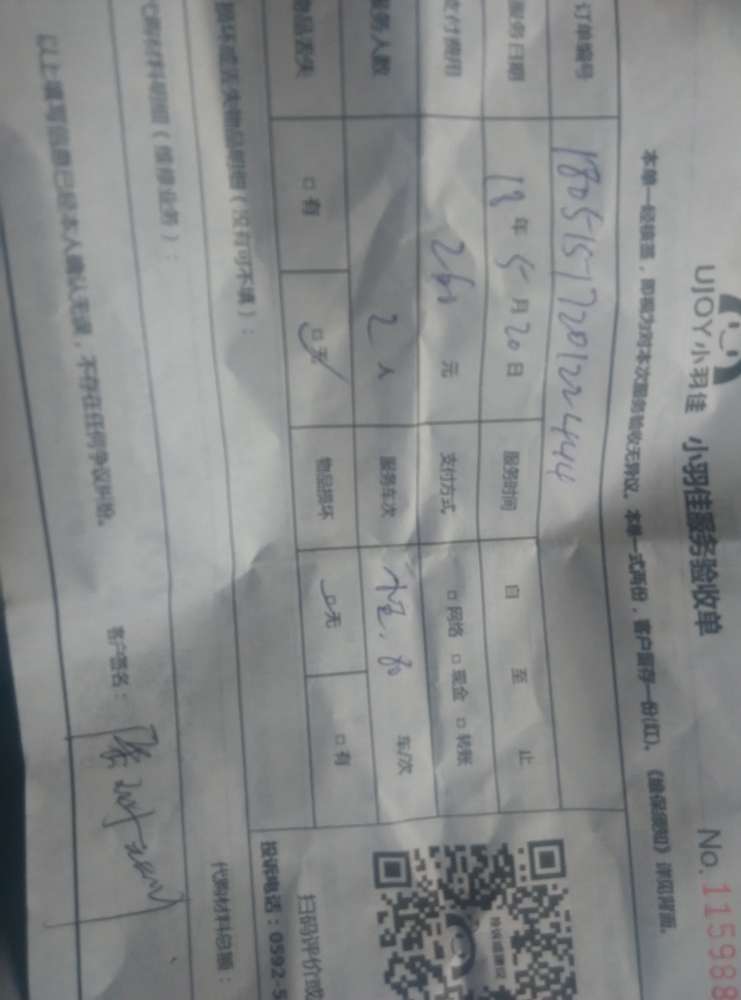 UJOY小羽佳 小羽佳服务验收单 No. 115988
本单一经签署，即视为对本次服务验收无异议。本单一式两份，客户留存一份(红)。
订单编号 180515172012244
服务日期 18 年 5 月 20 日 服务时间 自 至 止
支付费用 元 支付方式 □网络 □现金 □转账
服务人数 2 人 服务车次 车/次
物品丢失 □有 □无 物品损坏 □无 □有
损坏或丢失物品明细（没有可不填）：
扫码评价或
投诉电话：0592-5
代购材料明细（维修业务）： 代购材料总额：
以上填写信息已经本人确认无误，不存在任何争议纠纷。
客户签名：